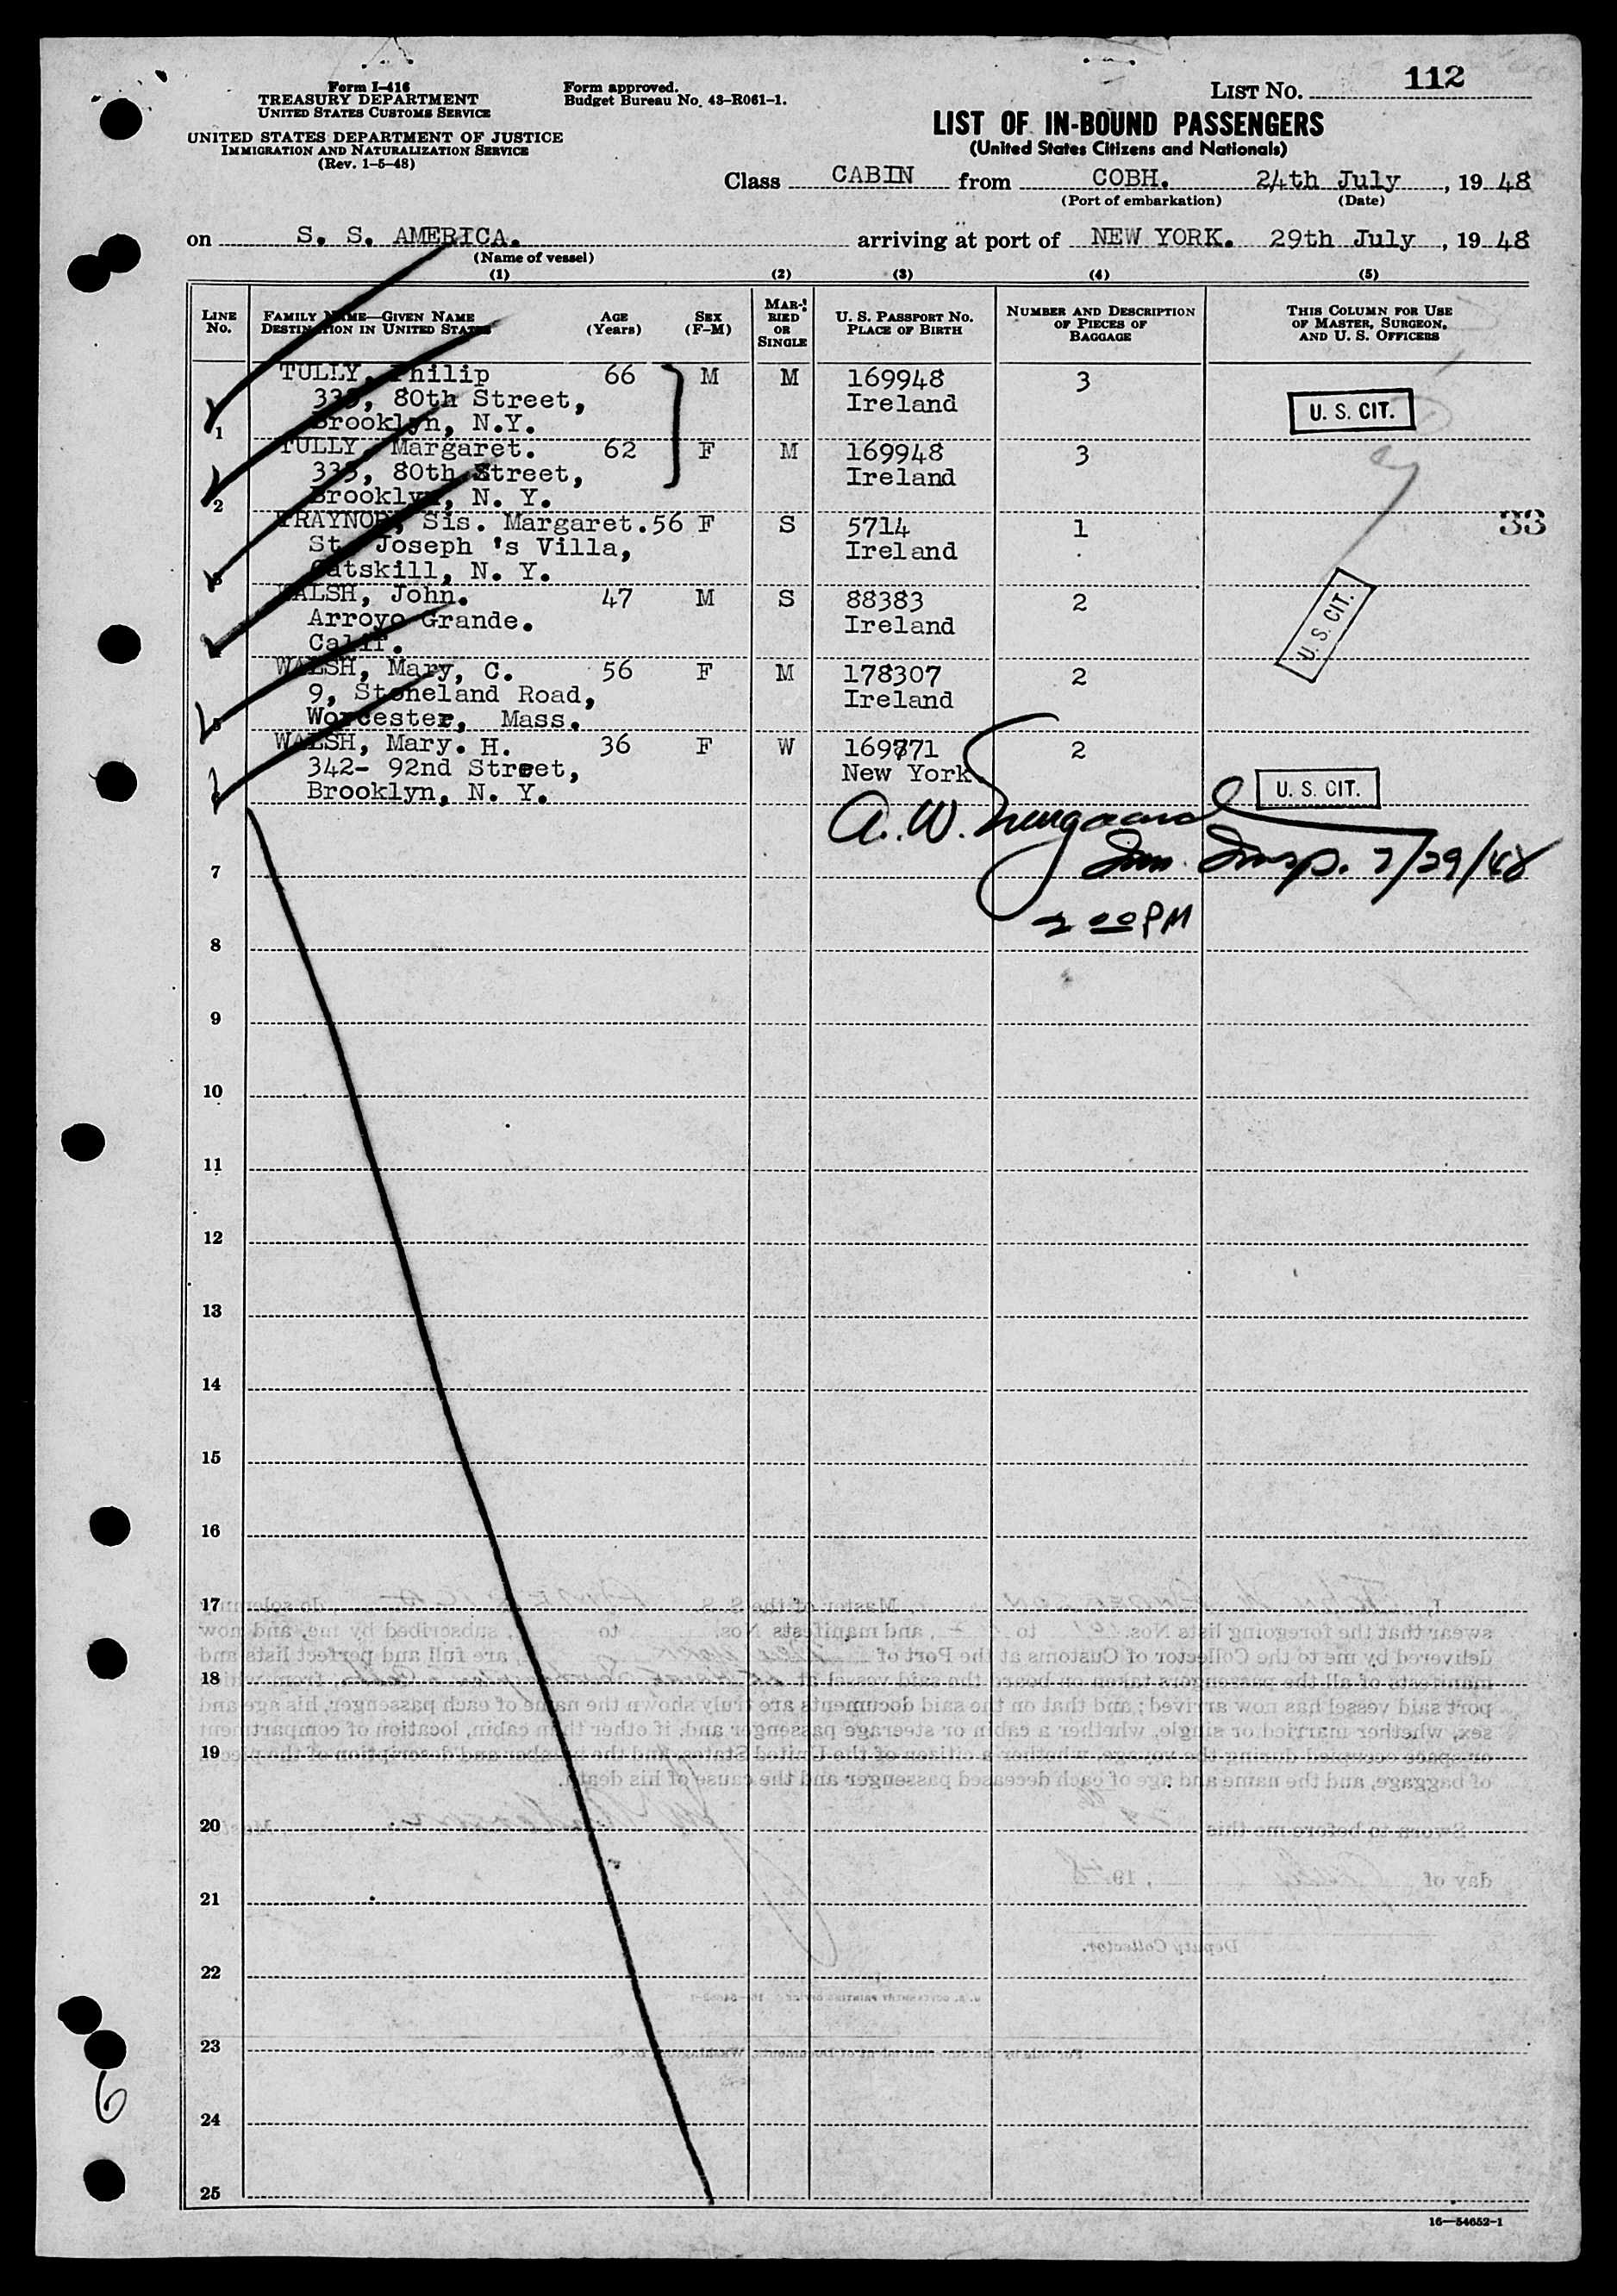 Form I-416
TREASURY DEPARTMENT
UNITED STATES CUSTOMS SERVICE
UNITED STATES DEPARTMENT OF JUSTICE
IMMIGRATION AND NATURALIZATION SERVICE
(Rev. 1-5-48)
Form approved.
Budget Bureau No. 43-R061-1.
LIST No. 112
LIST OF IN-BOUND PASSENGERS
(United States Citizens and Nationals)
Class CABIN from COBH. 24th July, 19 48
(Port of embarkation) (Date)
on S. S. AMERICA. arriving at port of NEW YORK. 29th July, 19 48
(Name of vessel)
(1) (2) (3) (4) (5)
LINE No.
FAMILY NAME—GIVEN NAME
DESTINATION IN UNITED STATES
AGE (Years)
SEX (F-M)
MARRIED OR SINGLE
U. S. PASSPORT NO.
PLACE OF BIRTH
NUMBER AND DESCRIPTION OF PIECES OF BAGGAGE
THIS COLUMN FOR USE OF MASTER, SURGEON, AND U. S. OFFICERS
TULLY, Philip 66 M M 169948 3
333, 80th Street, Ireland U. S. CIT.
1 Brooklyn, N.Y.
TULLY, Margaret. 62 F M 169948 3
333, 80th Street, Ireland
2 Brooklyn, N. Y.
TRAYNOR, Sis. Margaret. 56 F S 5714 1 33
St. Joseph 's Villa, Ireland
3 Catskill, N. Y.
WALSH, John. 47 M S 88383 2
Arroyo Grande. Ireland U. S. CIT.
Calif.
WALSH, Mary, C. 56 F M 178307 2
9, Stoneland Road, Ireland
5 Worcester, Mass.
WALSH, Mary. H. 36 F W 169771 2
342- 92nd Street, New York U. S. CIT.
Brooklyn, N. Y.
A. W.
Imm Insp. 7/29/48
7
2 00 PM
8
9
10
11
12
13
14
15
16
17
18
19
20
21
22
23
24
25
6
16—54652-1